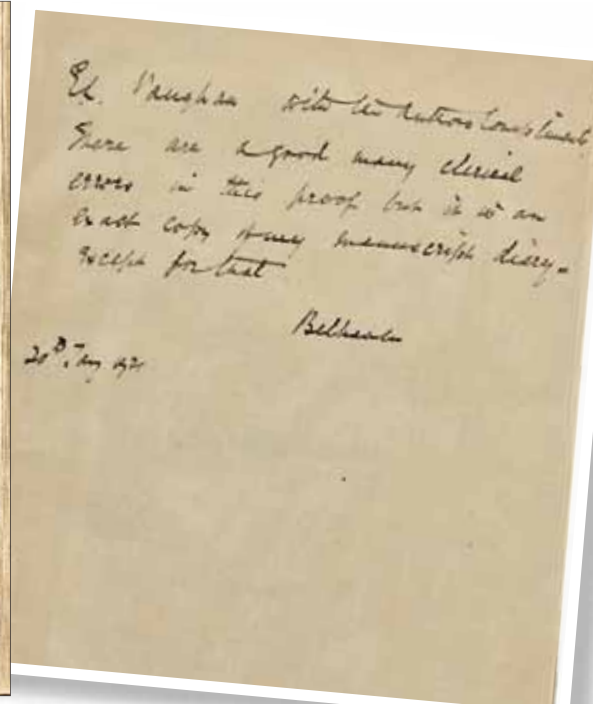 Vaughan with the Authors Compliments
There are a good many clerical
errors in this proof but it is an
exact copy of my manuscript diary -
except for that
Belhaven
20th Jany